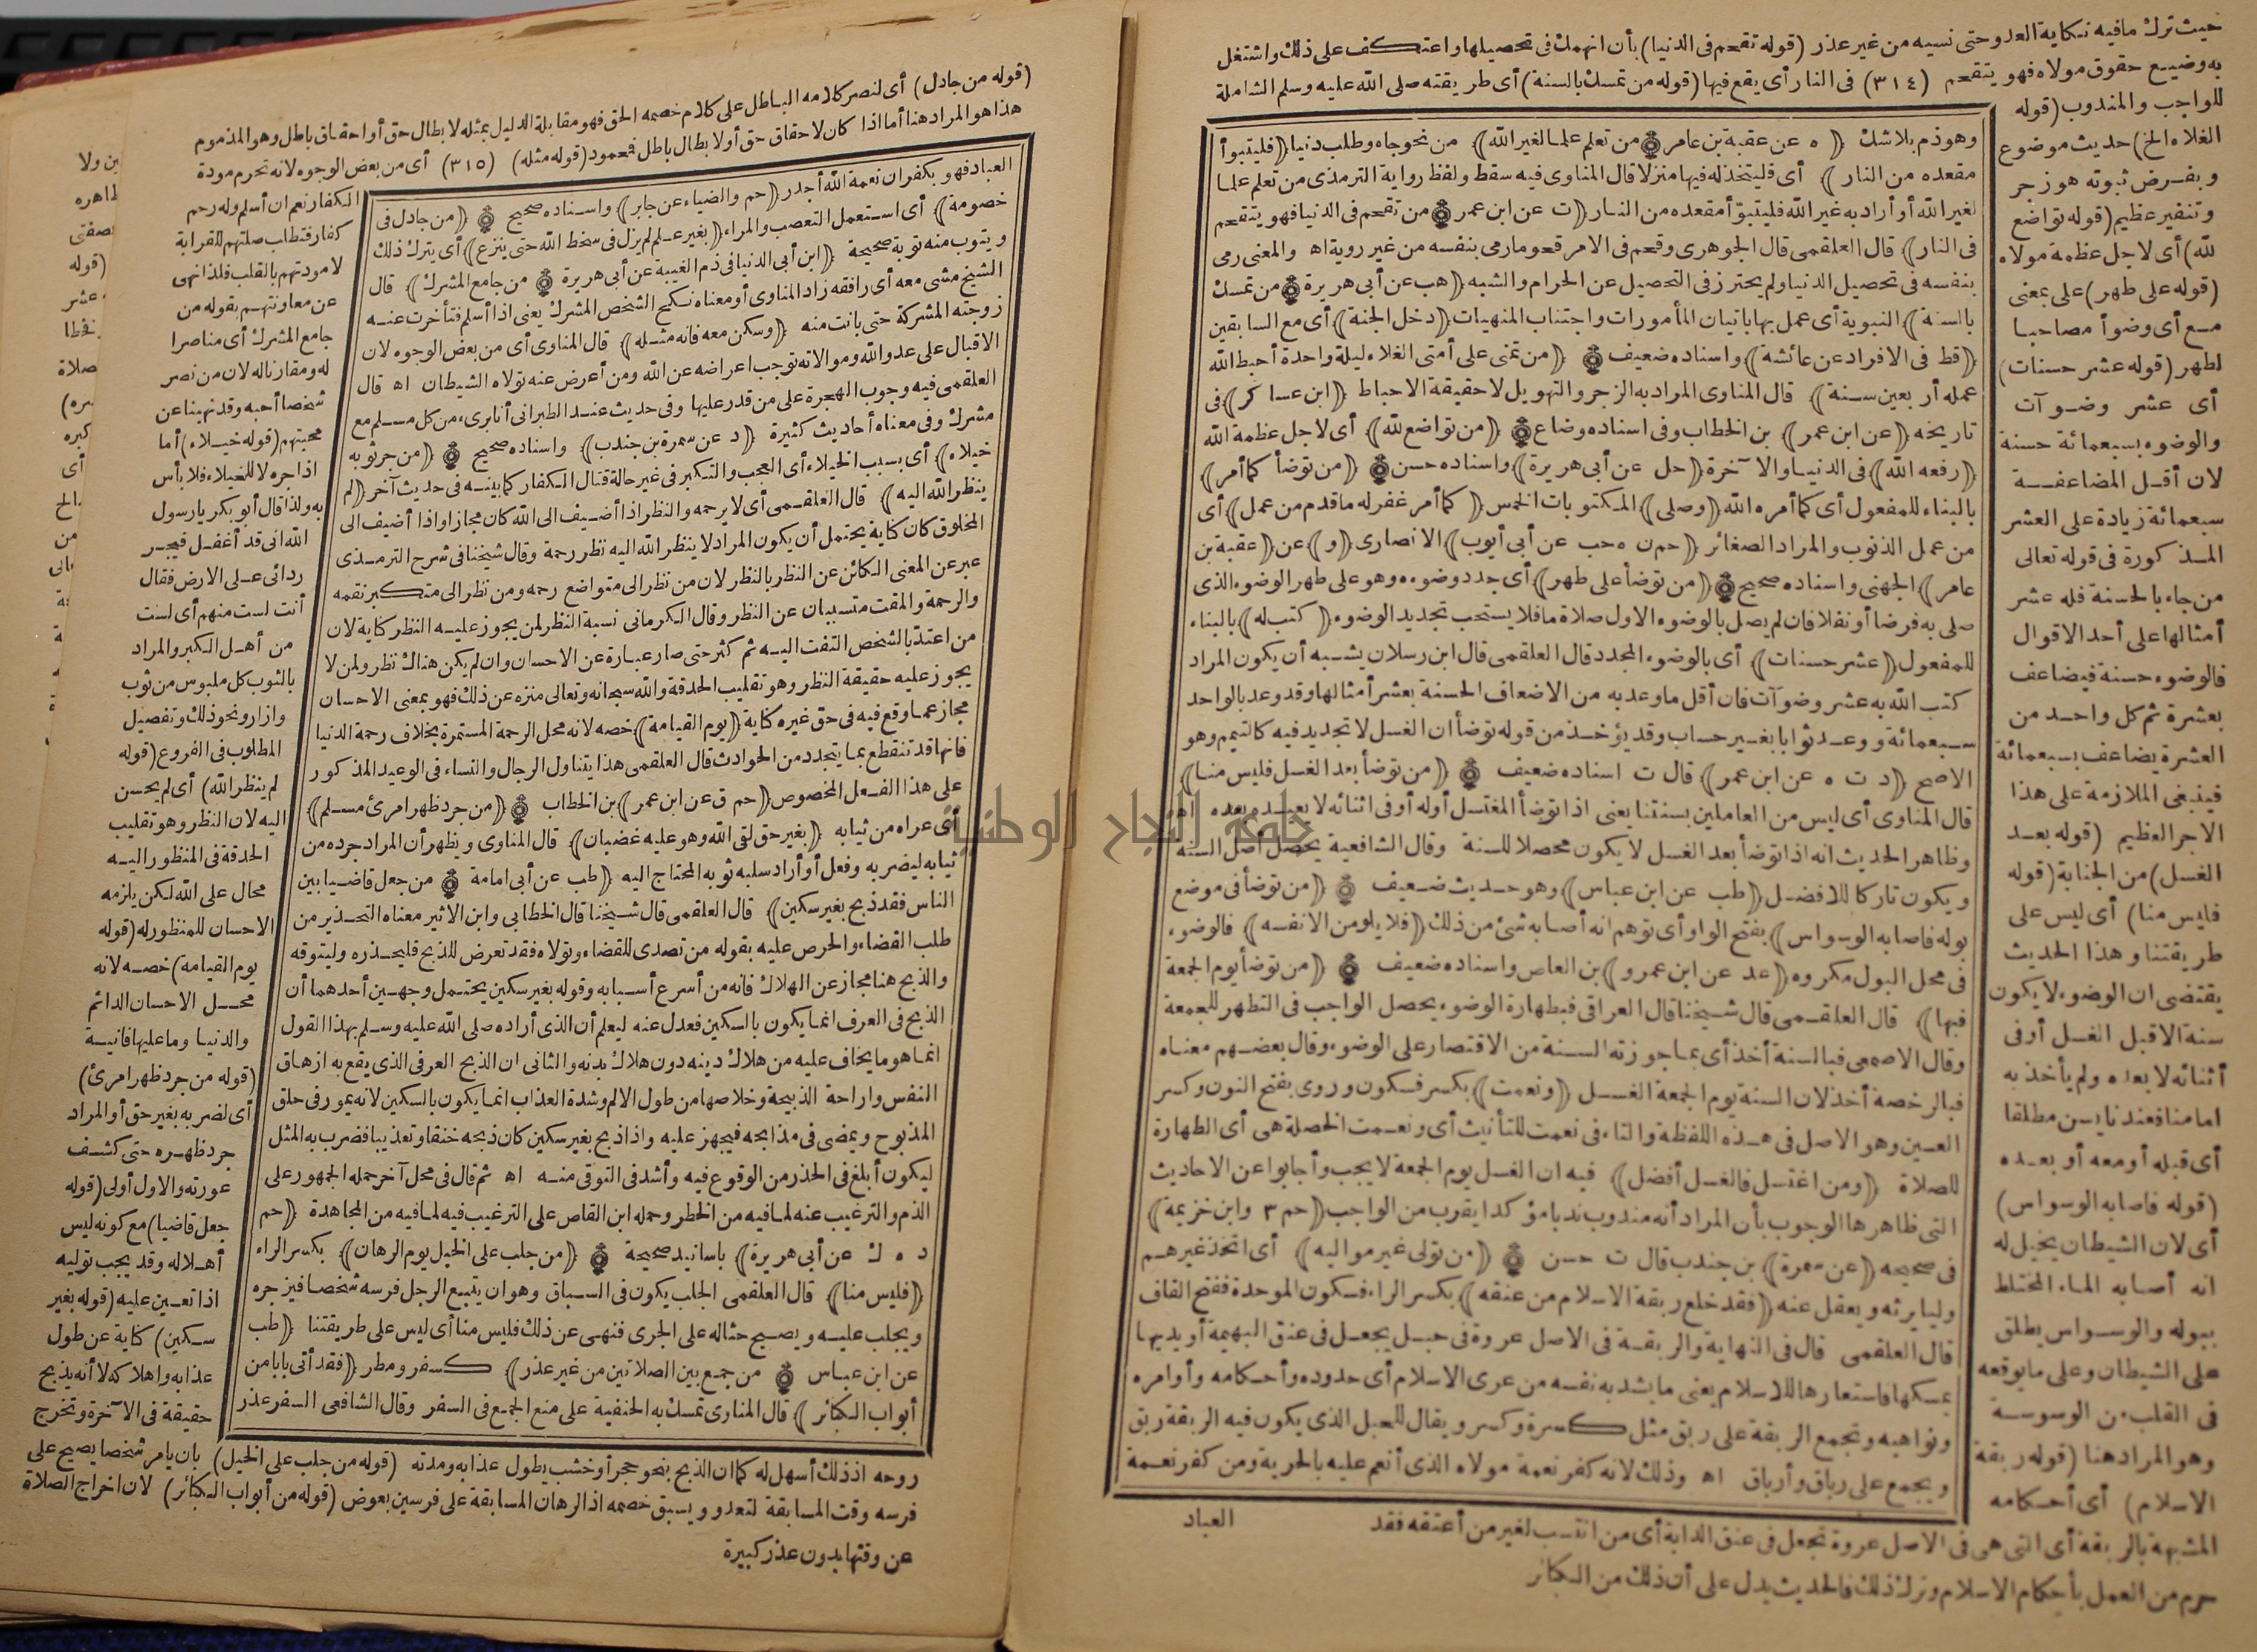 حيث ترك مافيه نكاية العدو حتى نسيه من غير عذر (قوله تقحم فى الدنيا) بأن انهمك فى تحصيلها واعتكف على ذلك واشتغل
به وضيع حقوق مولاه فهو يتقحم (٣١٤) فى النار أى يقع فيها (قوله من تمسك بالسنة) أى طريقته صلى الله عليه وسلم الشاملة
للواجب والمندوب (قوله
الغلاء الخ) حديث موضوع
وبفرض ثبوته هو زجر
وتنفير عظيم (قوله تواضع
لله) أى لاجل عظمة مولاه
(قوله على طهر) على بمعنى
مع أى وضوأ مصاحبا
لطهر (قوله عشر حسنات)
أى عشر وضوآت
والوضوء بسبعمائة حسنة
لان أقل المضاعفة
سبعمائة زيادة على العشر
المذكورة فى قوله تعالى
من جاء بالحسنة فله عشر
أمثالها على أحد الاقوال
فالوضوء حسنة فيضاعف
بعشرة ثم كل واحد من
العشرة يضاعف بسبعمائة
فينبغى الملازمة على هذا
الاجر العظيم (قوله بعد
الغسل) من الجنابة (قوله
فليس منا) أى ليس على
طريقتنا وهذا الحديث
يقتضى ان الوضوء لا يكون
سنة الا قبل الغسل أو فى
أثنائه لا بعده ولم يأخذ به
امامنا فعندنا يسن مطلقا
أى قبله أو معه أو بعده
(قوله فاصابه الوسواس)
أى لان الشيطان يخيل له
انه أصابه الماء المختلط
ببوله والوسواس يطلق
على الشيطان وعلى ما يوقعه
فى القلب من الوسوسة
وهو المراد هنا (قوله ربقة
الاسلام) أى أحكامه
وهو ذم بلا شك (ه عن عقبة بن عامر من تعلم علما لغير الله) من نحو جاه وطلب دنيا (فليتبوأ
مقعده من النار) أى فليتخذ له فيها منزلا قال المناوى فيه سقط ولفظ رواية الترمذى من تعلم علما
لغير الله أو أراد به غير الله فليتبوّأ مقعده من النار (ت عن ابن عمر من تقحم فى الدنيا فهو يتقحم
فى النار) قال العلقمى قال الجوهرى وقحم فى الامر قحوما رمى بنفسه من غير روية اه والمعنى رمى
بنفسه فى تحصيل الدنيا ولم يحترز فى التحصيل عن الحرام والشبه (هب عن أبى هريرة من تمسك
بالسنة) النبوية أى عمل بها باتيان المأمورات واجتناب المنهيات (دخل الجنة) أى مع السابقين
(قط فى الافراد عن عائشة) واسناده ضعيف (من تمنى على أمتى الغلاء ليلة واحدة أحبط الله
عمله أربعين سنة) قال المناوى المراد به الزجر والتهويل لا حقيقة الاحباط (ابن عساكر) فى
تاريخه (عن ابن عمر) بن الخطاب وفى اسناده وضاع (من تواضع لله) أى لاجل عظمة الله
(رفعه الله) فى الدنيا والآخرة (حل عن أبى هريرة) واسناده حسن (من توضأ كما أمر)
بالبناء للمفعول أى كما أمره الله (وصلى) المكتوبات الخمس (كما أمر غفر له ما قدم من عمل) أى
من عمل الذنوب والمراد الصغائر (حم ن ه حب عن أبى أيوب) الانصارى (و) عن (عقبة بن
عامر) الجهنى واسناده صحيح (من توضأ على طهر) أى جدد وضوءه وهو على طهر الوضوء الذى
صلى به فرضا أو نفلا فان لم يصل بالوضوء الاول صلاة ما فلا يستحب تجديد الوضوء (كتب له) بالبناء
للمفعول (عشر حسنات) أى بالوضوء المجدد قال العلقمى قال ابن رسلان يشبه أن يكون المراد
كتب الله به عشر وضوآت فان أقل ما وعد به من الاضعاف الحسنة بعشر أمثالها وقد وعد بالواحد
سبعمائة ووعد ثوابا بغير حساب وقد يؤخذ من قوله توضأ ان الغسل لا تجديد فيه كالتيمم وهو
الاصح (د ت ه عن ابن عمر) قال ت اسناده ضعيف (من توضأ بعد الغسل فليس منا)
قال المناوى أى ليس من العاملين بسنتنا يعنى اذا توضأ المغتسل أوله أو فى اثنائه لا يعيده بعده اه
وظاهر الحديث انه اذا توضأ بعد الغسل لا يكون محصلا للسنة وقال الشافعية يحصل أصل السنة
ويكون تاركا للافضل (طب عن ابن عباس) وهو حديث ضعيف (من توضأ فى موضع
بوله فاصابه الوسواس) بفتح الواو أى توهم انه أصابه شئ من ذلك (فلا يلومن الانفسه) فالوضوء
فى محل البول مكروه (عد عن ابن عمرو) بن العاص واسناده ضعيف (من توضأ يوم الجمعة
فبها) قال العلقمى قال شيخنا قال العراقى فبطهارة الوضوء يحصل الواجب فى التطهر للجمعة
وقال الاصمعى فبالسنة أخذ أى بما جوزته السنة من الاقتصار على الوضوء وقال بعضهم معناه
فبالرخصة أخذ لان السنة يوم الجمعة الغسل (ونعمت) بكسر فسكون وروى بفتح النون وكسر
العين وهو الاصل فى هذه اللفظة والتاء فى نعمت للتأنيث أى ونعمت الخصلة هى أى الطهارة
للصلاة (ومن اغتسل فالغسل أفضل) فيه ان الغسل يوم الجمعة لا يجب وأجابوا عن الاحاديث
التى ظاهرها الوجوب بأن المراد أنه مندوب ندبا مؤكدا يقرب من الواجب (حم ٣ وابن خزيمة)
فى صحيحه (عن سمرة) بن جندب قال ت حسن (من تولى غير مواليه) أى اتخذ غيرهم
وليا يرثه ويعقل عنه (فقد خلع ربقة الاسلام من عنقه) بكسر الراء فسكون الموحدة ففتح القاف
قال العلقمى قال فى النهاية والربقة فى الاصل عروة فى حبل يجعل فى عنق البهيمة أو يديها
يمسكها فاستعارها للاسلام يعنى ما يشد به نفسه من عرى الاسلام أى حدوده وأحكامه وأوامره
ونواهيه وتجمع الربقة على ربق مثل كسرة وكسر ويقال للحبل الذى يكون فيه الربقة ربق
ويجمع على رباق وأرباق اه وذلك لانه كفر نعمة مولاه الذى أنعم عليه بالحرية ومن كفر نعمة
العباد
المشبهة بالربقة أى التى هى فى الاصل عروة تجعل فى عنق الدابة أى من انتسب لغير من أعتقه فقد
حرم من العمل بأحكام الاسلام وترك ذلك فالحديث يدل على أن ذلك من الكبائر
(قوله من جادل) أى لنصر كلامه الباطل على كلام خصمه الحق فهو مقابلة الدليل بمثله لابطال حق أو احقاق باطل وهو المذموم
هذا هو المراد هنا أما اذا كان لاحقاق حق أو لابطال باطل فمحمود (قوله مثله) (٣١٥) أى من بعض الوجوه لانه تحرم مودة
الكفار نعم ان أسلم وله رحم
كفار فتطلب صلتهم للقرابة
لا مودتهم بالقلب فلذا نهى
عن معاونتهم بقوله من
جامع المشرك أى مناصرا
له ومقارنا له لان من نصر
شخصا أحبه وقد نهينا عن
محبتهم (قوله خيلاء) أما
اذا جره لا للخيلاء فلا بأس
به ولذا قال أبو بكر يا رسول
الله انى قد أغفل فيجر
ردائى على الارض فقال
أنت لست منهم أى لست
من أهل الكبر والمراد
بالثوب كل ملبوس من ثوب
وازار ونحو ذلك وتفصيل
المطلوب فى الفروع (قوله
لم ينظر الله) أى لم يحسن
اليه لان النظر وهو تقليب
الحدقة فى المنظور اليه
محال على الله لكن يلزمه
الاحسان للمنظور له (قوله
يوم القيامة) خصه لانه
محل الاحسان الدائم
والدنيا وما عليها فانية
(قوله من جرد ظهر امرئ)
أى لضربه بغير حق أو المراد
جرد ظهره حتى كشف
عورته والاول أولى (قوله
جعل قاضيا) مع كونه ليس
أهلا له وقد يجب توليه
اذا تعين عليه (قوله بغير
سكين) كناية عن طول
عذابه واهلاكه لا أنه يذبح
حقيقة فى الآخرة وتخرج
العباد فهو بكفران نعمة الله أجدر (حم والضياء عن جابر) واسناده صحيح (من جادل فى
خصومة) أى استعمل التعصب والمراء (بغير علم لم يزل فى سخط الله حتى ينزع) أى يترك ذلك
ويتوب منه توبة صحيحة (ابن أبى الدنيا فى ذم الغيبة عن أبى هريرة من جامع المشرك) قال
الشيخ مشى معه أى رافقه زاد المناوى أو معناه نكح الشخص المشرك يعنى اذا أسلم فتأخرت عنه
زوجته المشركة حتى بانت منه (وسكن معه فانه مثله) قال المناوى أى من بعض الوجوه لان
الاقبال على عدو الله وموالاته توجب اعراضه عن الله ومن أعرض عنه تولاه الشيطان اه قال
العلقمى فيه وجوب الهجرة على من قدر عليها وفى حديث عند الطبرانى أنا برىء من كل مسلم مع
مشرك وفى معناه أحاديث كثيرة (د عن سمرة بن جندب) واسناده صحيح (من جر ثوبه
خيلاء) أى بسبب الخيلاء أى العجب والتكبر فى غير حالة قتال الكفار كما بينه فى حديث آخر (لم
ينظر الله اليه) قال العلقمى أى لا يرحمه والنظر اذا أضيف الى الله كان مجازا واذا أضيف الى
المخلوق كان كناية يحتمل أن يكون المراد لا ينظر الله اليه نظر رحمة وقال شيخنا فى شرح الترمذى
عبر عن المعنى الكائن عن النظر بالنظر لان من نظر الى متواضع رحمه ومن نظر الى متكبر نقمه
والرحمة والمقت متسببان عن النظر وقال الكرمانى نسبة النظر لمن يجوز عليه النظر كناية لان
من اعتدّ بالشخص التفت اليه ثم كثر حتى صار عبارة عن الاحسان وان لم يكن هناك نظر ولمن لا
يجوز عليه حقيقة النظر وهو تقليب الحدقة والله سبحانه وتعالى منزه عن ذلك فهو بمعنى الاحسان
مجاز عما وقع فيه فى حق غيره كناية (يوم القيامة) خصه لانه محل الرحمة المستمرة بخلاف رحمة الدنيا
فانها قد تنقطع بما يتجدد من الحوادث قال العلقمى هذا يتناول الرجال والنساء فى الوعيد المذكور
على هذا الفعل المخصوص (حم ق عن ابن عمر) بن الخطاب (من جرد ظهر امرئ مسلم)
أى عراه من ثيابه (بغير حق لقى الله وهو عليه غضبان) قال المناوى ويظهر أن المراد جرده من
ثيابه ليضربه وفعل أو أراد سلبه ثوبه المحتاج اليه (طب عن أبى امامة من جعل قاضيا بين
الناس فقد ذبح بغير سكين) قال العلقمى قال شيخنا قال الخطابى وابن الاثير معناه التحذير من
طلب القضاء والحرص عليه بقوله من تصدى للقضاء وتولاه فقد تعرض للذبح فليحذره وليتوقه
والذبح هنا مجاز عن الهلاك فانه من أسرع أسبابه وقوله بغير سكين يحتمل وجهين أحدهما أن
الذبح فى العرف انما يكون بالسكين فعدل عنه ليعلم أن الذى أراده صلى الله عليه وسلم بهذا القول
انما هو ما يخاف عليه من هلاك دينه دون هلاك بدنه والثانى ان الذبح العرفى الذى يقع به ازهاق
النفس واراحة الذبيحة وخلاصها من طول الالم وشدة العذاب انما يكون بالسكين لانه يمور فى حلق
المذبوح ويمضى فى مذابحه فيجهز عليه واذا ذبح بغير سكين كان ذبحه خنقا وتعذيبا فضرب به المثل
ليكون أبلغ فى الحذر من الوقوع فيه وأشد فى التوقى منه اه ثم قال فى محل آخر حمله الجمهور على
الذم والترغيب عنه لما فيه من الخطر وحمله ابن القاص على الترغيب فيه لما فيه من المجاهدة (حم
د ه ك عن أبى هريرة) باسانيد صحيحة (من جلب على الخيل يوم الرهان) بكسر الراء
(فليس منا) قال العلقمى الجلب يكون فى السباق وهو ان يتبع الرجل فرسه شخصا فيزجره
ويجلب عليه ويصيح حثا له على الجرى فنهى عن ذلك فليس منا أى ليس على طريقتنا (طب
عن ابن عباس من جمع بين الصلاتين من غير عذر) كسفر ومطر (فقد أتى بابا من
أبواب الكبائر) قال المناوى تمسك به الحنفية على منع الجمع فى السفر وقال الشافعى السفر عذر
روحه اذ ذلك أسهل له كما ان الذبح بنحو حجر أو خشب يطول عذابه ومدته (قوله من جلب على الخيل) بان يامر شخصا يصيح على
فرسه وقت المسابقة لتعدو ويسبق خصمه اذ الرهان المسابقة على فرسين بعوض (قوله من أبواب الكبائر) لان اخراج الصلاة
عن وقتها بدون عذر كبيرة
جامعة النجاح الوطنية